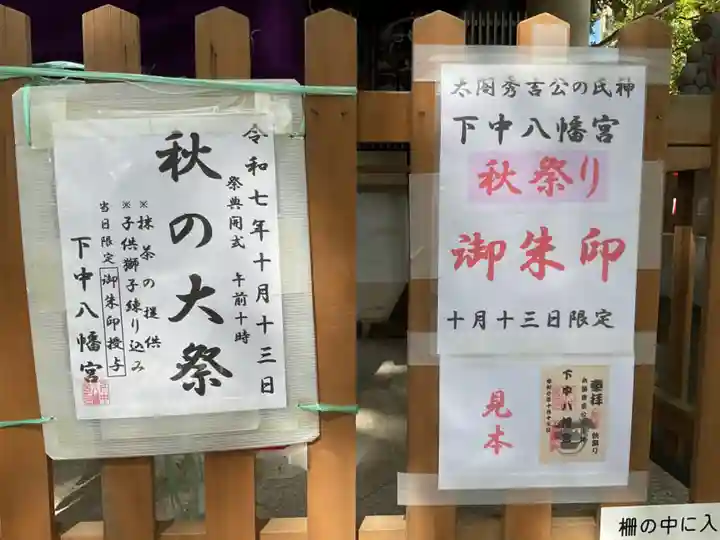 令和七年十月十三日
祭典開式 午前十時
秋の大祭
※抹茶の提供
※子供獅子練り込み
当日限定 御朱印授与
下中八幡宮
太閤秀吉公の氏神
下中八幡宮
秋祭り
御朱印
十月十三日限定
見本
奉拝
下中八幡宮
秋祭り
柵の中に入